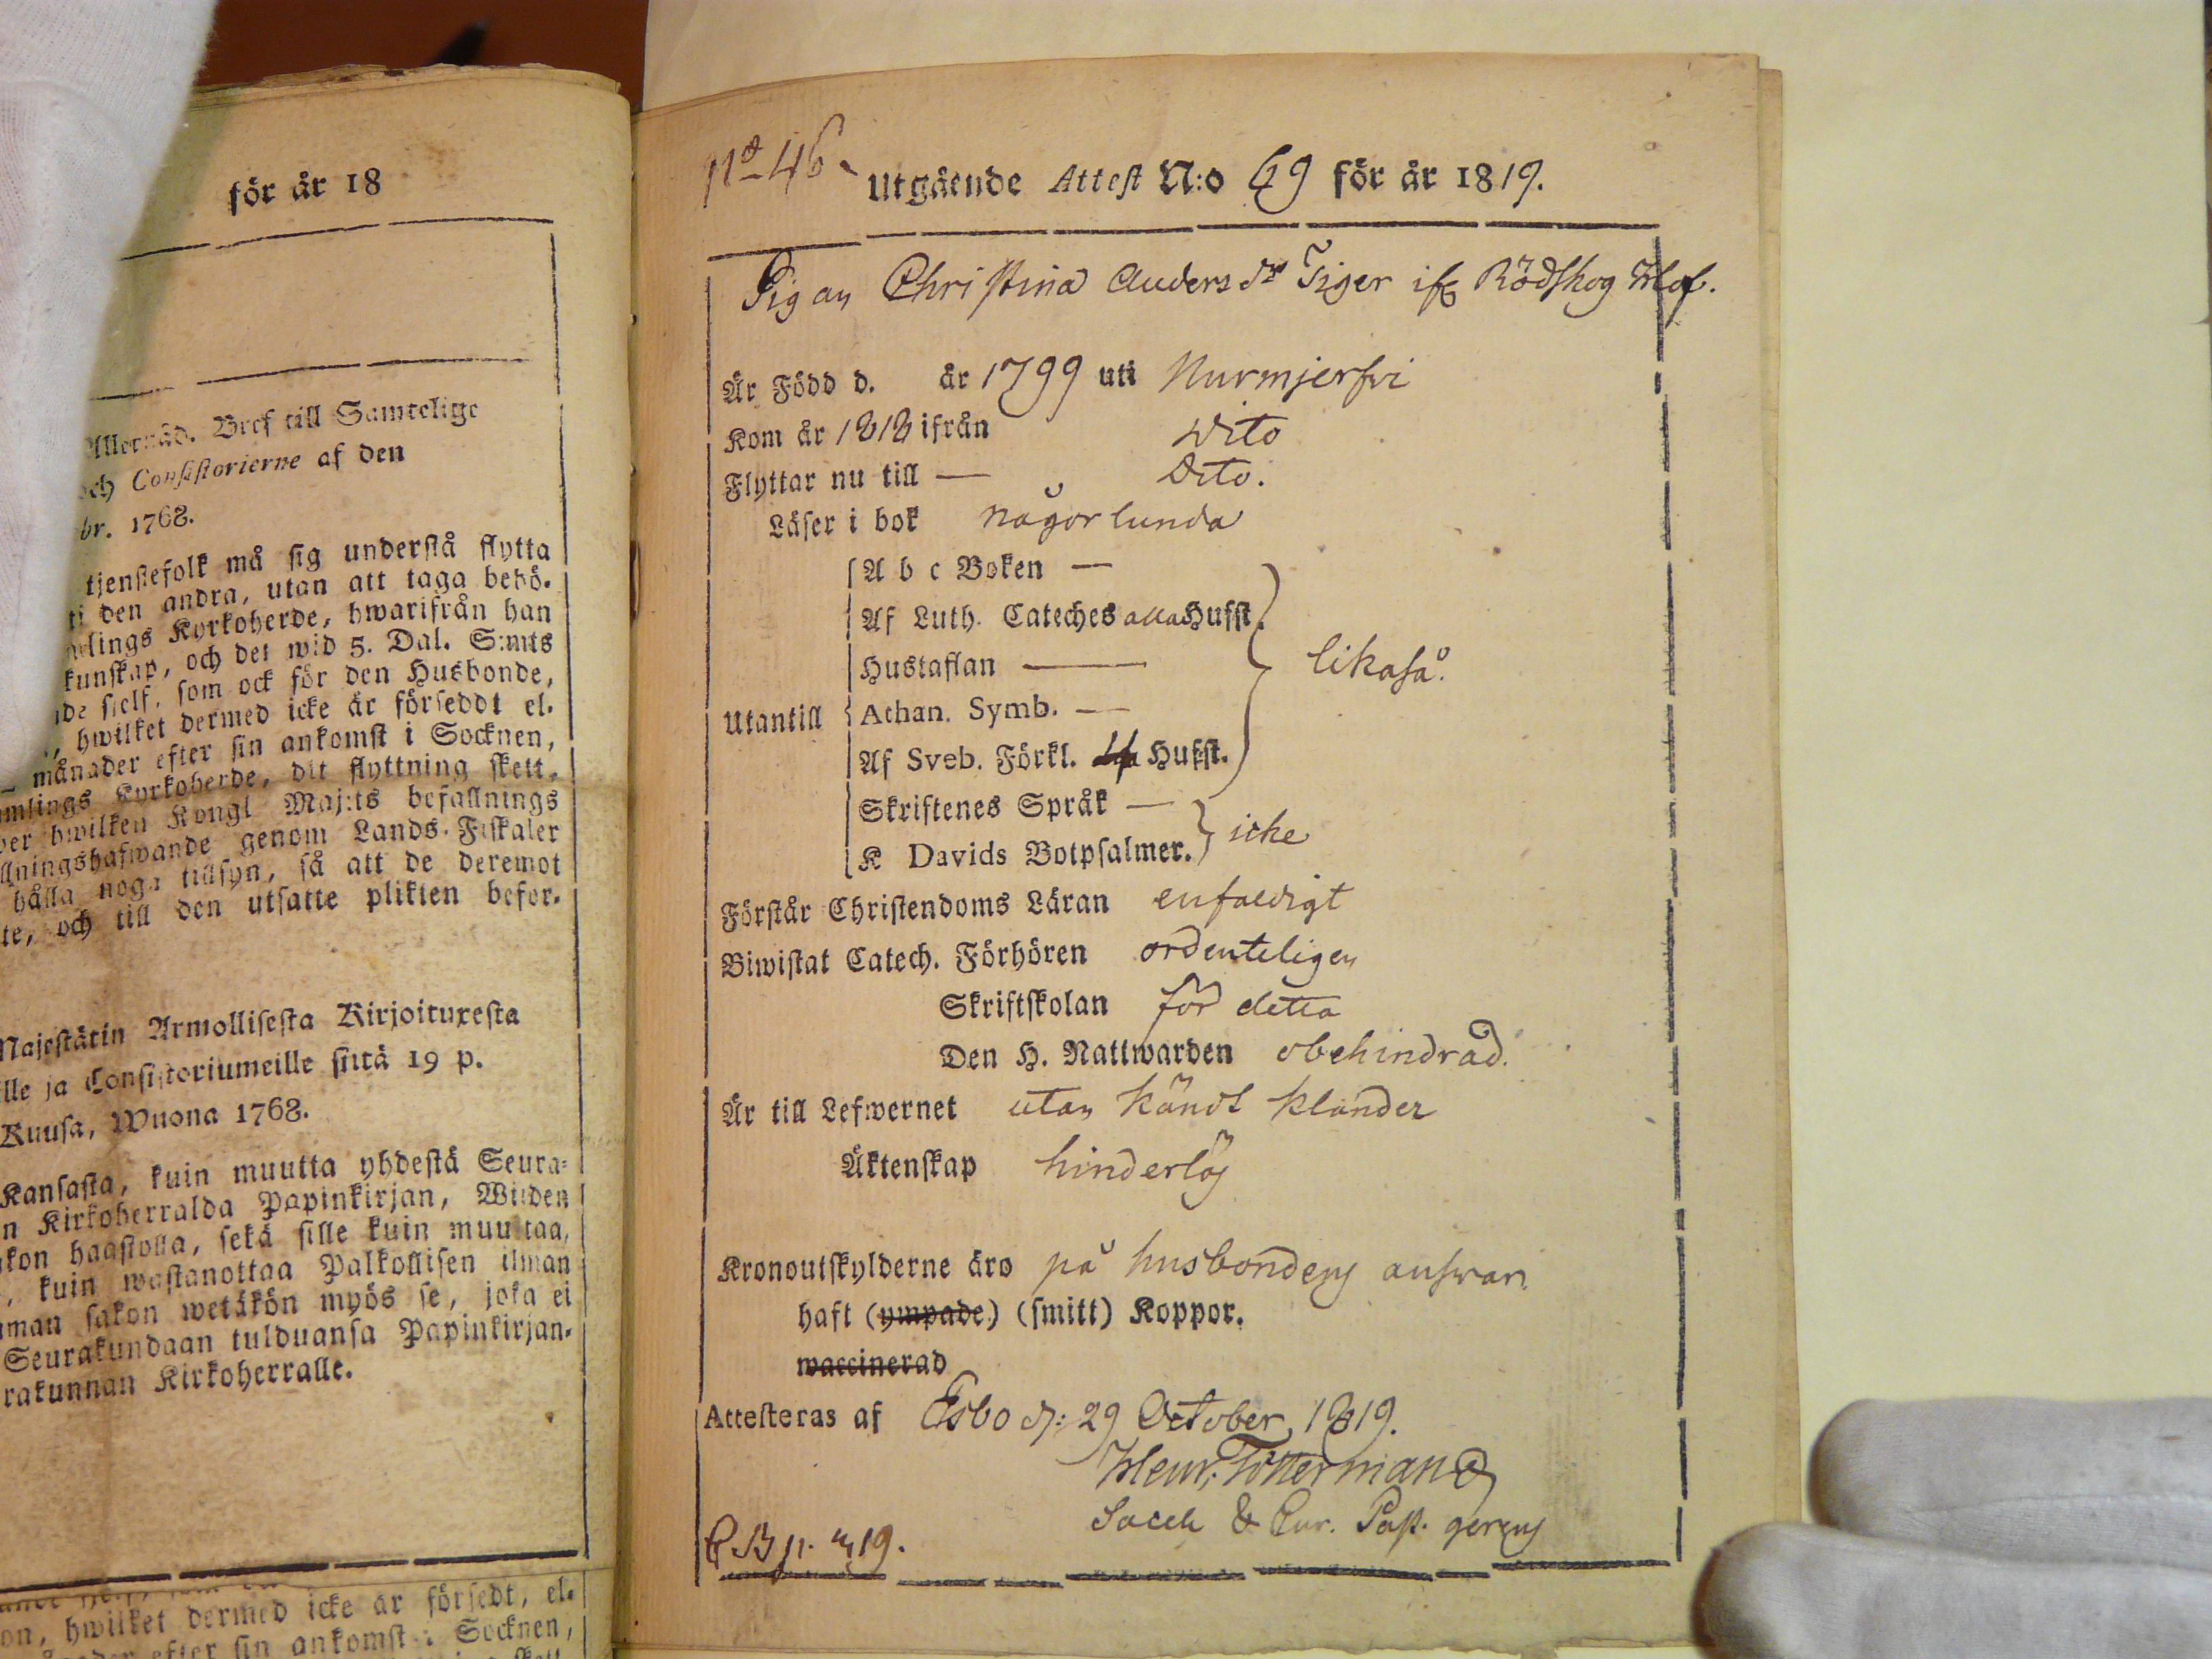 för år 18
Allernåd. Bref till Samtelige
och Consistorierne af den
br. 1768.
tjenstefolk må sig understå flytta
ti den andra, utan att taga behö-
Kyrkoherde, hwarifrån han
kunskap, och det wid 5. Dal. S:mts
sjelf, som ock för den Husbonde,
hwilket dermed icke är förseddt el-
månader efter sin ankomst i Socknen,
Kyrkoherde, dit flyttning skett,
hwilken Kongl Maj:ts befallnings
genom Lands-Fiskaler
hålla noga tillsyn, så att de deremot
te, och till den utsatte plikten befor-
Majestätin Armollisesta Kirjoituxesta
lle ja Consistoriumeille siitä 19 p.
Kuusa, Wuona 1768.
Kansasta, kuin muutta yhdestä Seura-
n Kirkoherralda Papinkirjan, Wiiden
akon haastolla, sekä sille kuin muuttaa,
, kuin wastanottaa Palkollisen ilman
man sakon wetäkön myös se, joka ei
Seurakundaan tulduansa Papinkirjan-
rakunnan Kirkoherralle.
on, hwilket dermed icke är försedt, el-
efter sin ankomst i Socknen,
No 46
Utgående Attest N:o 49 för år 1819.
Pigan Christina Andersdr Tiger ifr Rödskog Hof.
Är Född d. år 1799 uti Nurmjerfvi
Kom år 1818 ifrån Dito
Flyttar nu till — Dito.
Läser i bok någorlunda
A b c Boken —
Af Luth. Cateches alla Hufst.
Hustaflan — likaså.
Utantill Athan. Symb. —
Af Sveb. Förkl. 4 Hufst.
Skriftenes Språk —
K Davids Botpsalmer. icke
Förstår Christendoms Läran enfaldigt
Biwistat Catech. Förhören ordenteligen
Skriftskolan för detta
Den H. Nattwarden obehindrad.
Är till Lefwernet utan kändt klander
Äktenskap hinderlös
Kronoutskylderne äro på husbondens answar.
haft (ympade) (smitt) Koppor.
waccinerad
Attesteras af Esbo d: 29 October 1819.
Henr. Tötterman
Sacell & Cur. Past. gerens